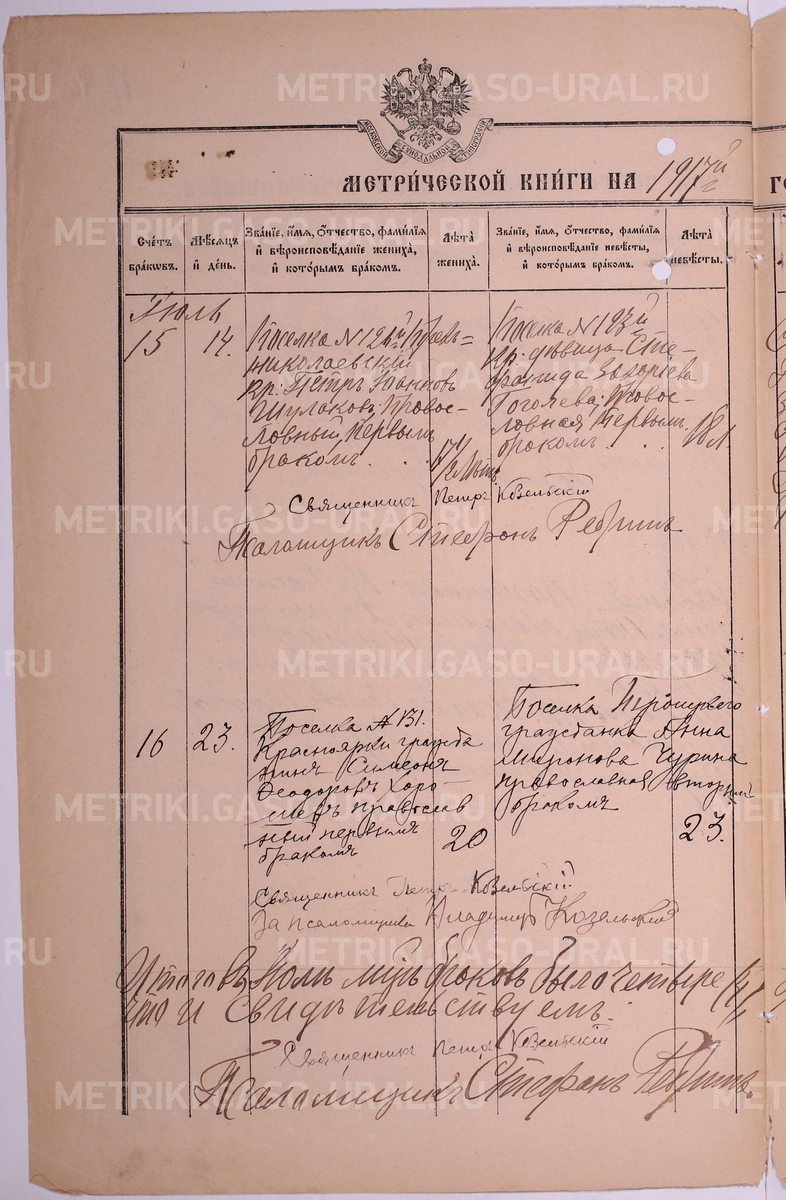 METRIKI.GASO-URAL.RU
МОСКОВСКОЙ СѴНОДАЛЬНОЙ ТИПОГРАФІИ
МЕТРИ́ЧЕСКОЙ КНИ́ГИ НА 1917й г
Сче́тъ бра́кѡвъ.
Мѣ́сяцъ и де́нь.
Зва́нїе, и́мя, о́тчество, фами́лїя и вѣроисповѣ́данїе жениха̀, и кото́рымъ бра́комъ.
Лѣ́та жениха̀.
Зва́нїе, и́мя, о́тчество, фами́лїя и вѣроисповѣ́данїе невѣ́сты, и кото́рымъ бра́комъ.
Лѣ́та невѣ́сты.
Іюль
15
14.
Поселка №
николаевскій
кр. Петръ Іоанновъ
Шулаковъ, Право-
славный, первымъ
бракомъ . .
17 1/2 лѣтъ
Поселка №
кр. дѣвица Сте-
фанида
Гоголева, Правос-
лавная, первым.
бракомъ . .
18 л.
Священникъ Петръ Козельскій
Псаломщикъ Стефанъ
16
23.
Поселка № 131.
Красноярки гражда
нинъ Симеонъ
Ѳеодоровъ Харо
шевъ православ
ный первымъ
бракомъ
20
Поселка
гражданка Анна
Миронова Чурина
православная вторымъ
бракомъ
23.
Священникъ Петръ Козельскій
За псаломщика Владимиръ Козельскій
Итого въ Іюлѣ мцѣ браковъ было четыре /4/
что и свидѣтельствуемъ.
Священникъ Петръ Козельскій
Псаломщикъ Стефанъ